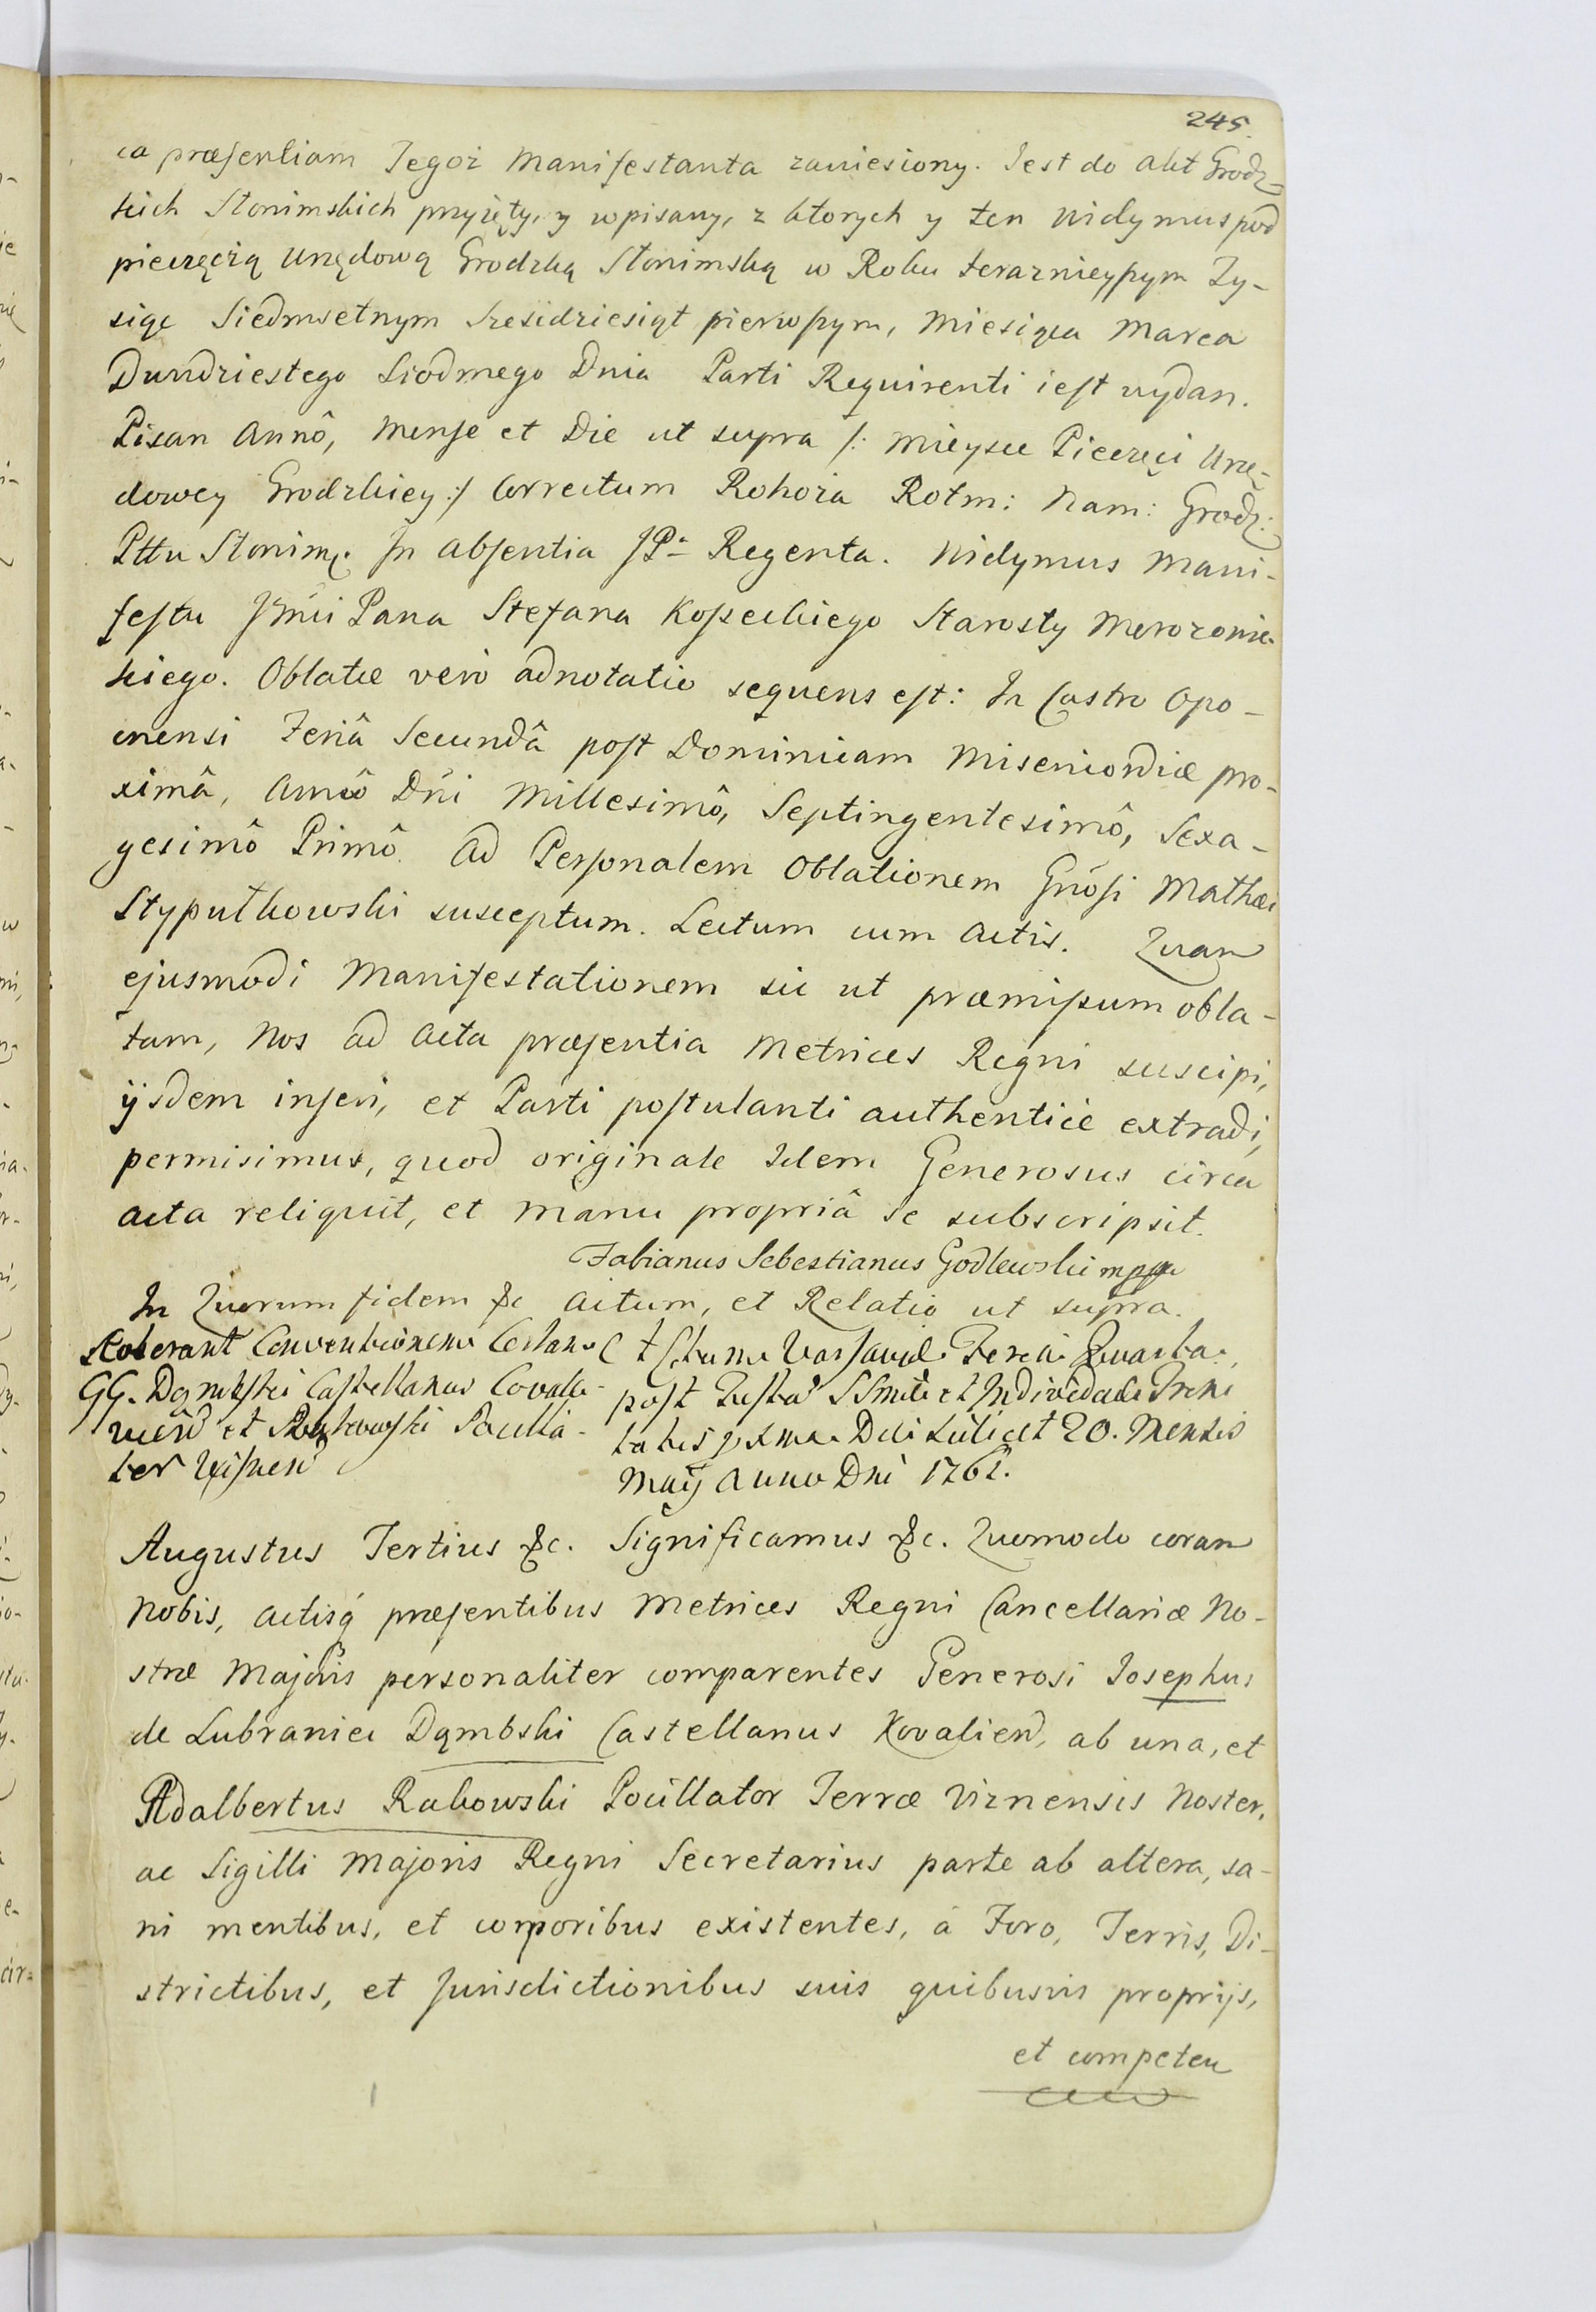 245.
ca præsentiam Tegoż Manifestanta zaniesiony. Iest do Akt Grodz-
kich Słonimskich przyięty, y wpisany, z ktorych y ten Widymus pod
pieczęcią Urzędową Grodzką Słonimską w Roku teraznieyszym Ty-
siąc Siedmsetnym Szescidziesiąt pierwszym, Miesiąca Marca
Dwudziestego Siodmego Dnia Parti Requirenti iest wydan.
Pisan Annô, Mense et Die ut supra /: Mieysce Pieczęci Urzę-
dowey Grodzkiey :/ Correctum Rohoża Rotm: Nam: Grodz:
Pttu Słonim. In Absentia JPa Regenta. Widymus Mani-
festu Jmci Pana Stefana Kosseckiego Starosty Merozonic-
kiego. Oblatæ verò adnotatio sequens est: In Castro Opo-
cznensi Feriâ Secundâ post Dominicam Misericordiæ pro-
ximâ, Annô Dńi Millesimô, Septingentesimô, Sexa-
gesimô Primô. Ad Personalem Oblationem Gnosi Mathæi
Stypułkowski susceptum. Lectum cum Actis. Quam
ejusmodi Manifestationem sic ut præmissum obla-
tam, Nos ad Acta præsentia Metrices Regni suscipi,
ijsdem inseri, et Parti postulanti authenticè extradi,
permisimus, quod originale Idem Generosus circa
acta reliquit, et manu propriâ se subscripsit.
Fabianus Sebestianus Godlewski mppa
In Quorum fidem &c Actum, et Relatio ut supra.
Roborant Conventionem Certam
GG. Dąmbski Castellanus Covali-
ucen et Rakowski Pocilla-
tor Visnen
Actum Varsaviæ Feria Quarta
post Festum SSmæ et Individuæ Trini
tatis pxma Die scilicet 20. Mensis
Maij Anno Dni 1761.
Augustus Tertius &c. Significamus &c. Quomodo coram
Nobis, Actisq́ præsentibus Metrices Regni Cancellariæ No-
stræ Majoris personaliter comparentes Generosi Iosephus
de Lubraniec Dąmbski Castellanus Kovalien, ab una, et
Adalbertus Rakowski Pocillator Terræ Viznensis Noster,
ac Sigilli Majoris Regni Secretarius parte ab altera, sa-
ni mentibus, et corporibus existentes, à Foro, Terris, Di-
strictibus, et Jurisdictionibus suis quibusvis proprijs,
et competen